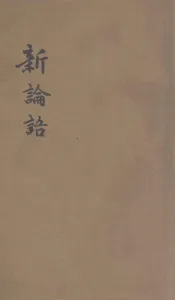 新論語